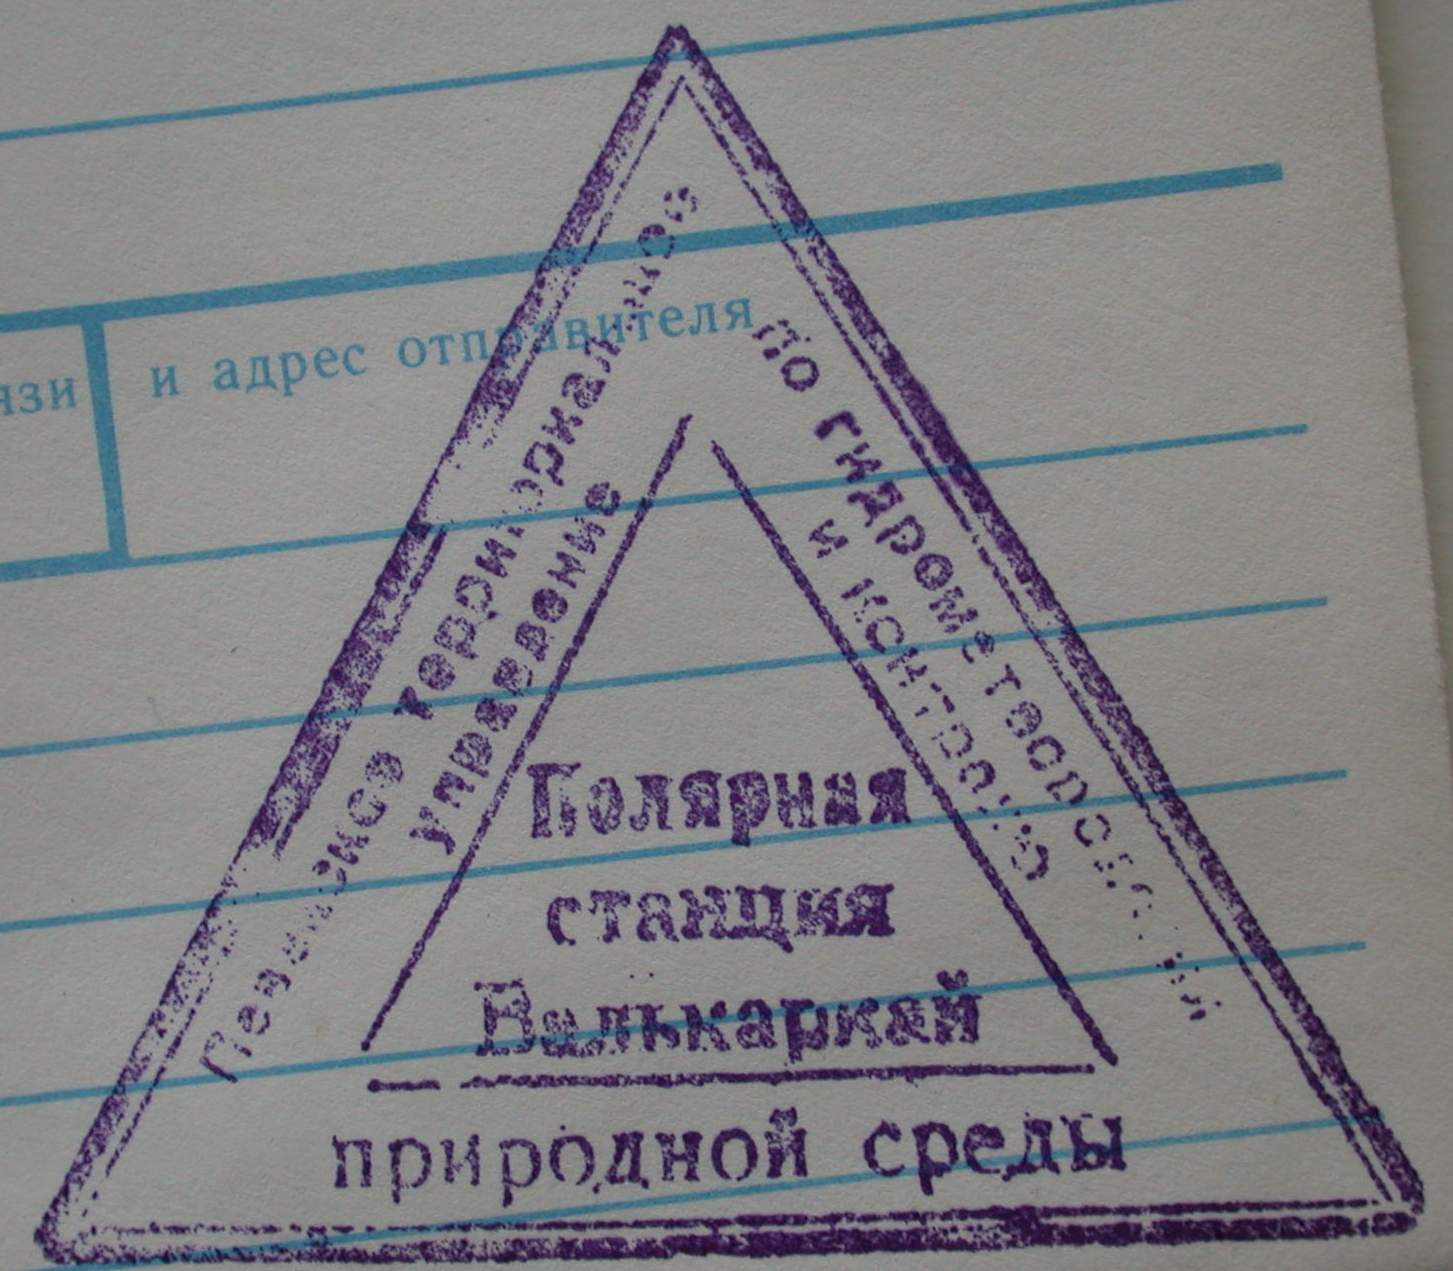 язи
и адрес отправителя
Певекское территориальное
управление
по гидрометеорологии
и контролю
Полярная
станция
Валькаркай
природной среды